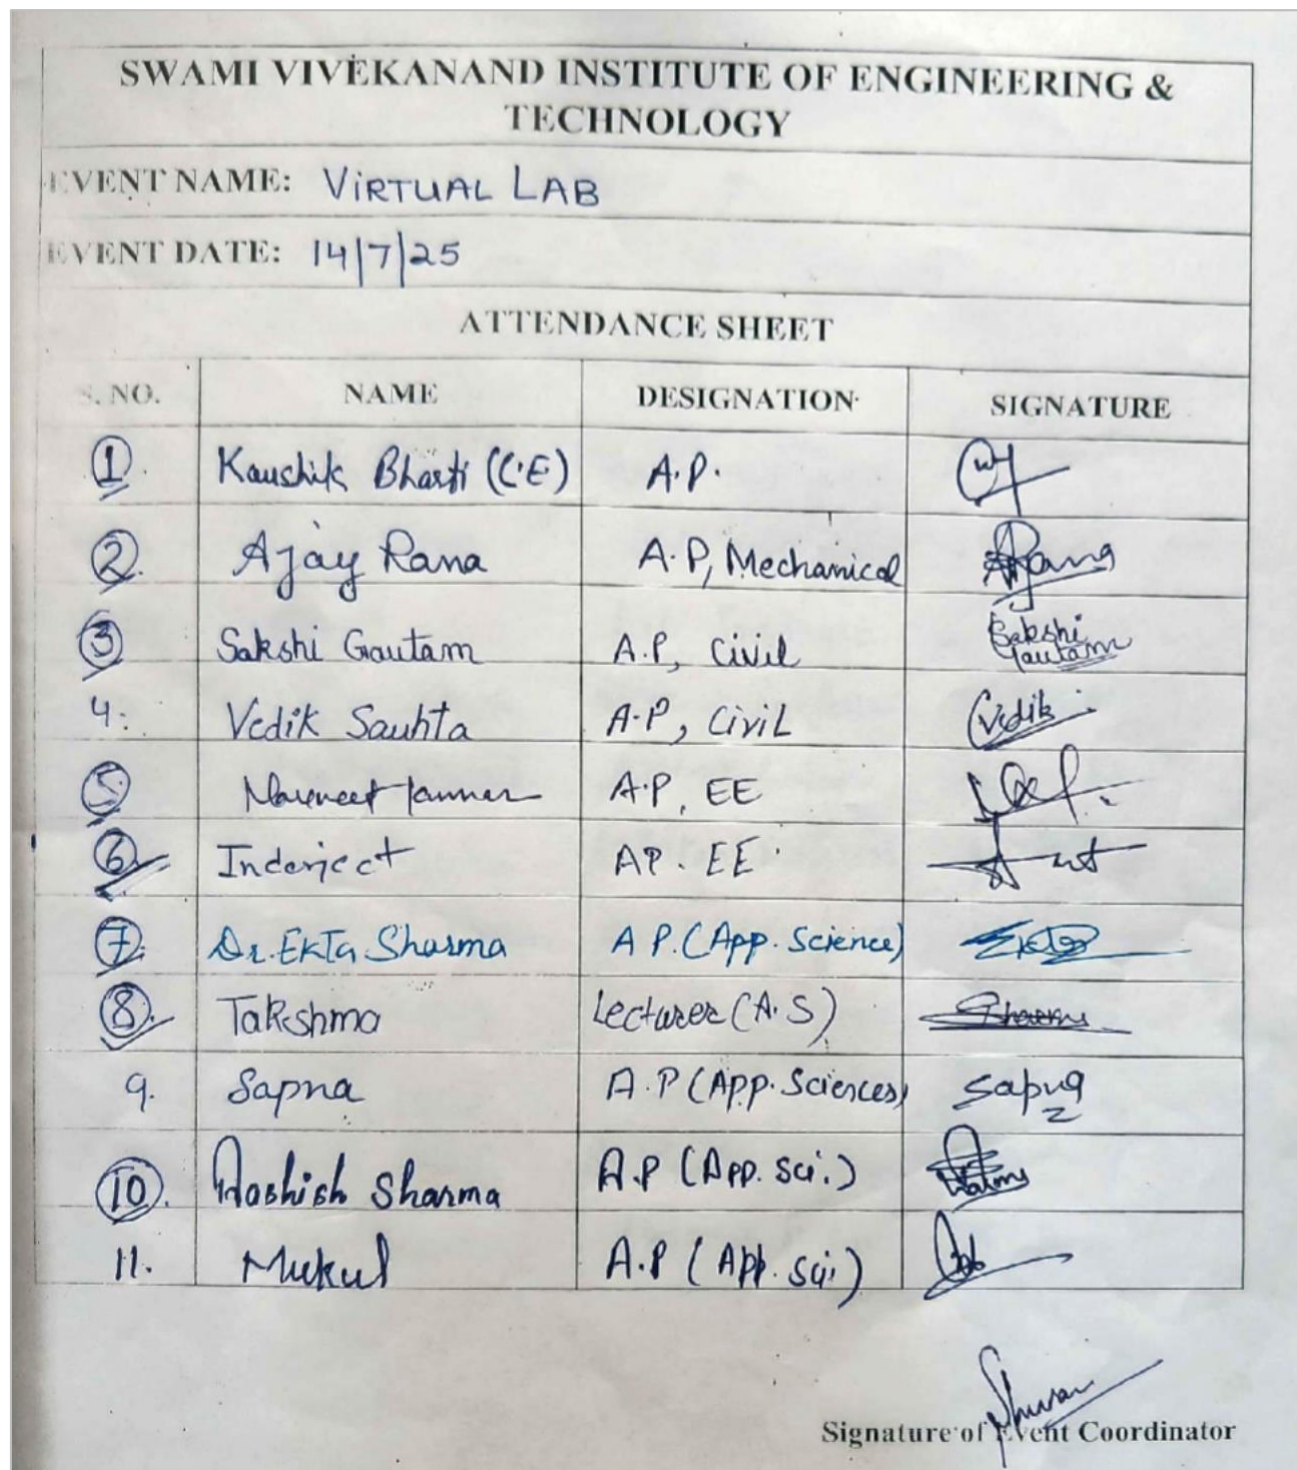 SWAMI VIVEKANAND INSTITUTE OF ENGINEERING &
TECHNOLOGY
EVENT NAME: VIRTUAL LAB
EVENT DATE: 14/7/25
ATTENDANCE SHEET
S. NO. NAME DESIGNATION SIGNATURE
1. Kaushik Bharti (C.E) A.P.
2. Ajay Rana A.P, Mechanical
3 Sakshi Gautam A.P, Civil Sakshi Gautam
4. Vedik Sauhta A-P, Civil Vedik
5. Navneet A.P, EE
6. Inderjeet AP. EE
7. Dr. Ekta Sharma A P. (App. Science) Ekta
8. Takshma Lecturer (A.S)
9. Sapna A.P (App. Sciences) Sapna
10. Aashish Sharma A.P (App. Sci.)
11. Mukul A.P (App. Sci)
Signature of Event Coordinator